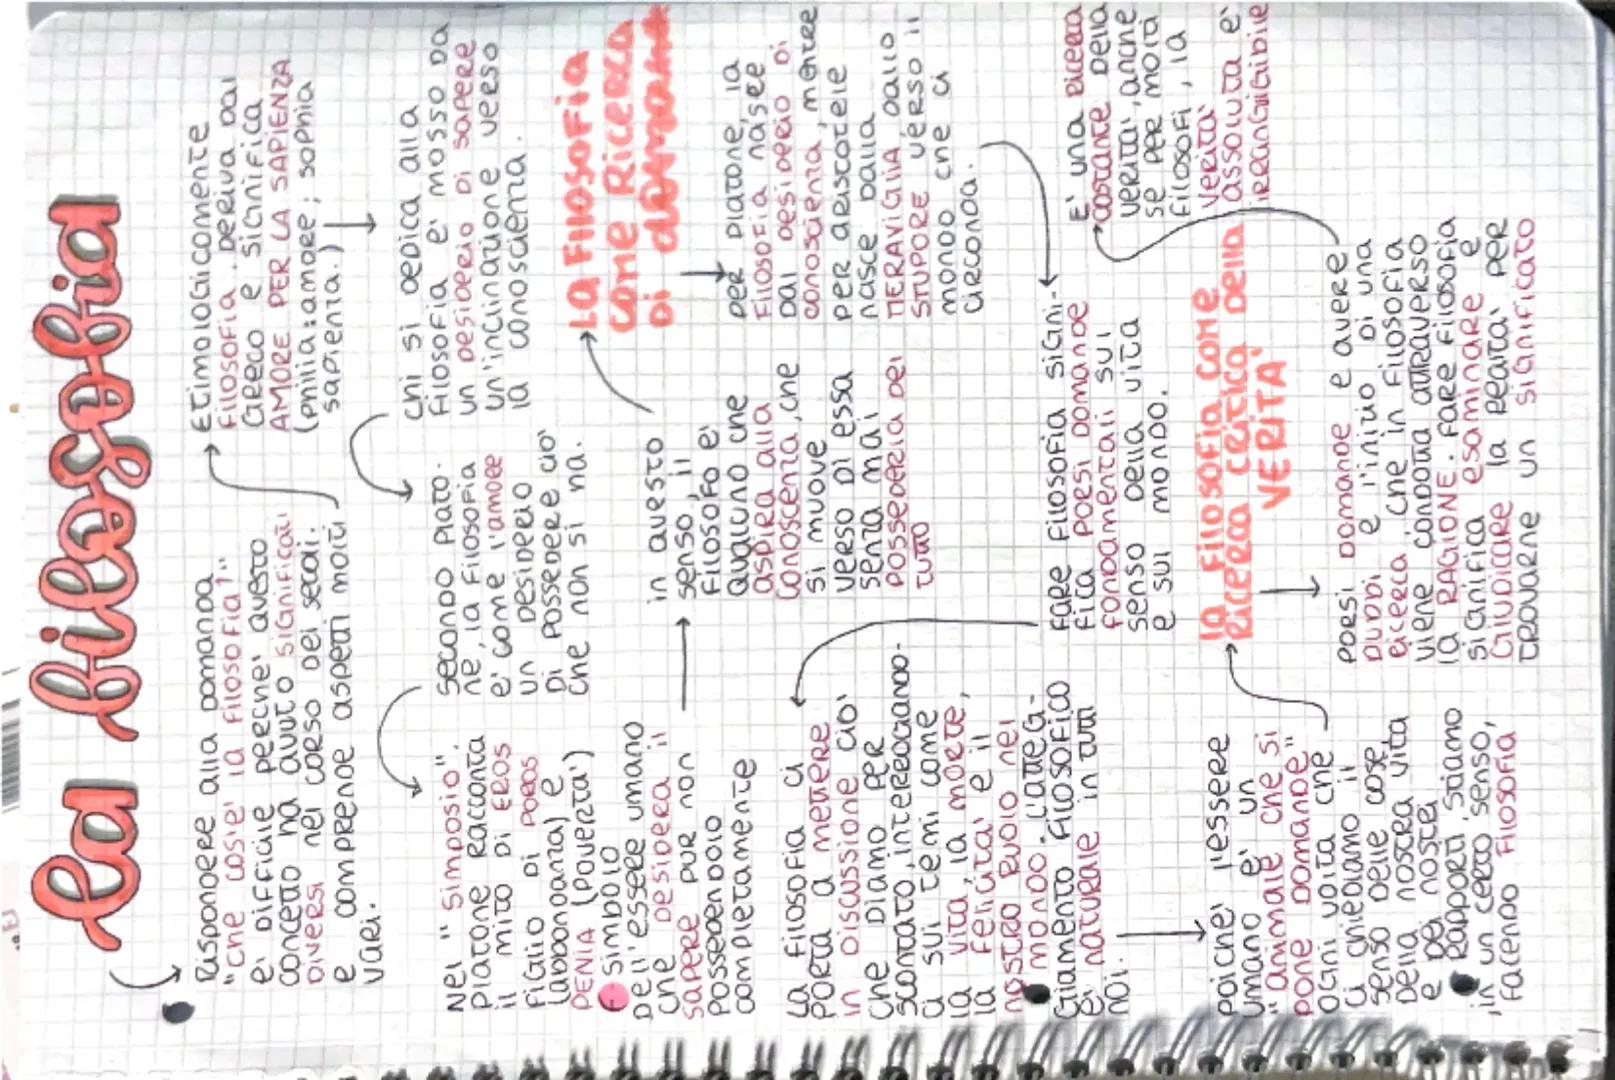 La filosofia
Rispondere alla domanda
"che cos'è la filosofia?"
è difficile perché questo
concetto ha avuto significati
diversi nel corso dei secoli.
e comprende aspetti molto
vari.
Etimologicamente
filosofia deriva dal
greco e significa
AMORE PER LA SAPIENZA
(philia: amore; sophia
sapienza.)
chi si dedica alla
filosofia e' mosso da
un desiderio di sapere
un'inclinazione verso
la conoscienza.
secondo Plato-
ne, la filosofia
e' come l'amore
un desiderio
di possedere cio'
che non si ha.
Nel "Simposio".
Platone racconta
il mito di EROS
figlio di POROS
(abbonoanza) e
PENIA (Povertà)
simbolo
dell'essere umano
che desidera il
sapere pur non
possedendolo
completamente
in questo
senso, il
filosofo e'
qualcuno che
aspira alla
conoscenza, che
si muove
verso di essa
senza mai
possederla del
tutto
LA FILOSOFIA
come Ricerca
Di domande
per Platone, la
filosofia nasce
dal desiderio di
conoscienza, mentre
per Aristotele
nasce dalla
MERAVIGLIA dallo
STUPORE verso il
mondo che ci
circonda.
Fare filosofia signi-
fica porsi domande
fondamentali sul
senso della vita
e sul mondo.
La filosofia ci
porta a mettere
in discussione cio'
che diamo per
scontato, interrogando-
ci sui temi come
la vita, la morte,
la felicita' e il
nostro ruolo nel
mondo. L'atteg-
giamento filosofico
e' naturale in tutti
noi.
poiche' l'essere
umano e' un
"animale che si
pone domande"
ogni volta che
ci chiediamo il
senso delle cose,
della nostra vita
e dei nostri
rapporti, stiamo
,in un certo senso,
facendo filosofia
la filosofia come
Ricerca critica della
VERITA'
PORSI DOMANDE e avere
DUBBI e' l'inizio di una
ricerca che in filosofia
viene condotta attraverso
la RAGIONE. Fare filosofia
significa esaminare e
GIUDICARE la realta' per
trovarne un significato
E' una ricerca
costante della
verita', anche
se per molti
filosofi, la
verita'
assoluta e'
irrangiugibile